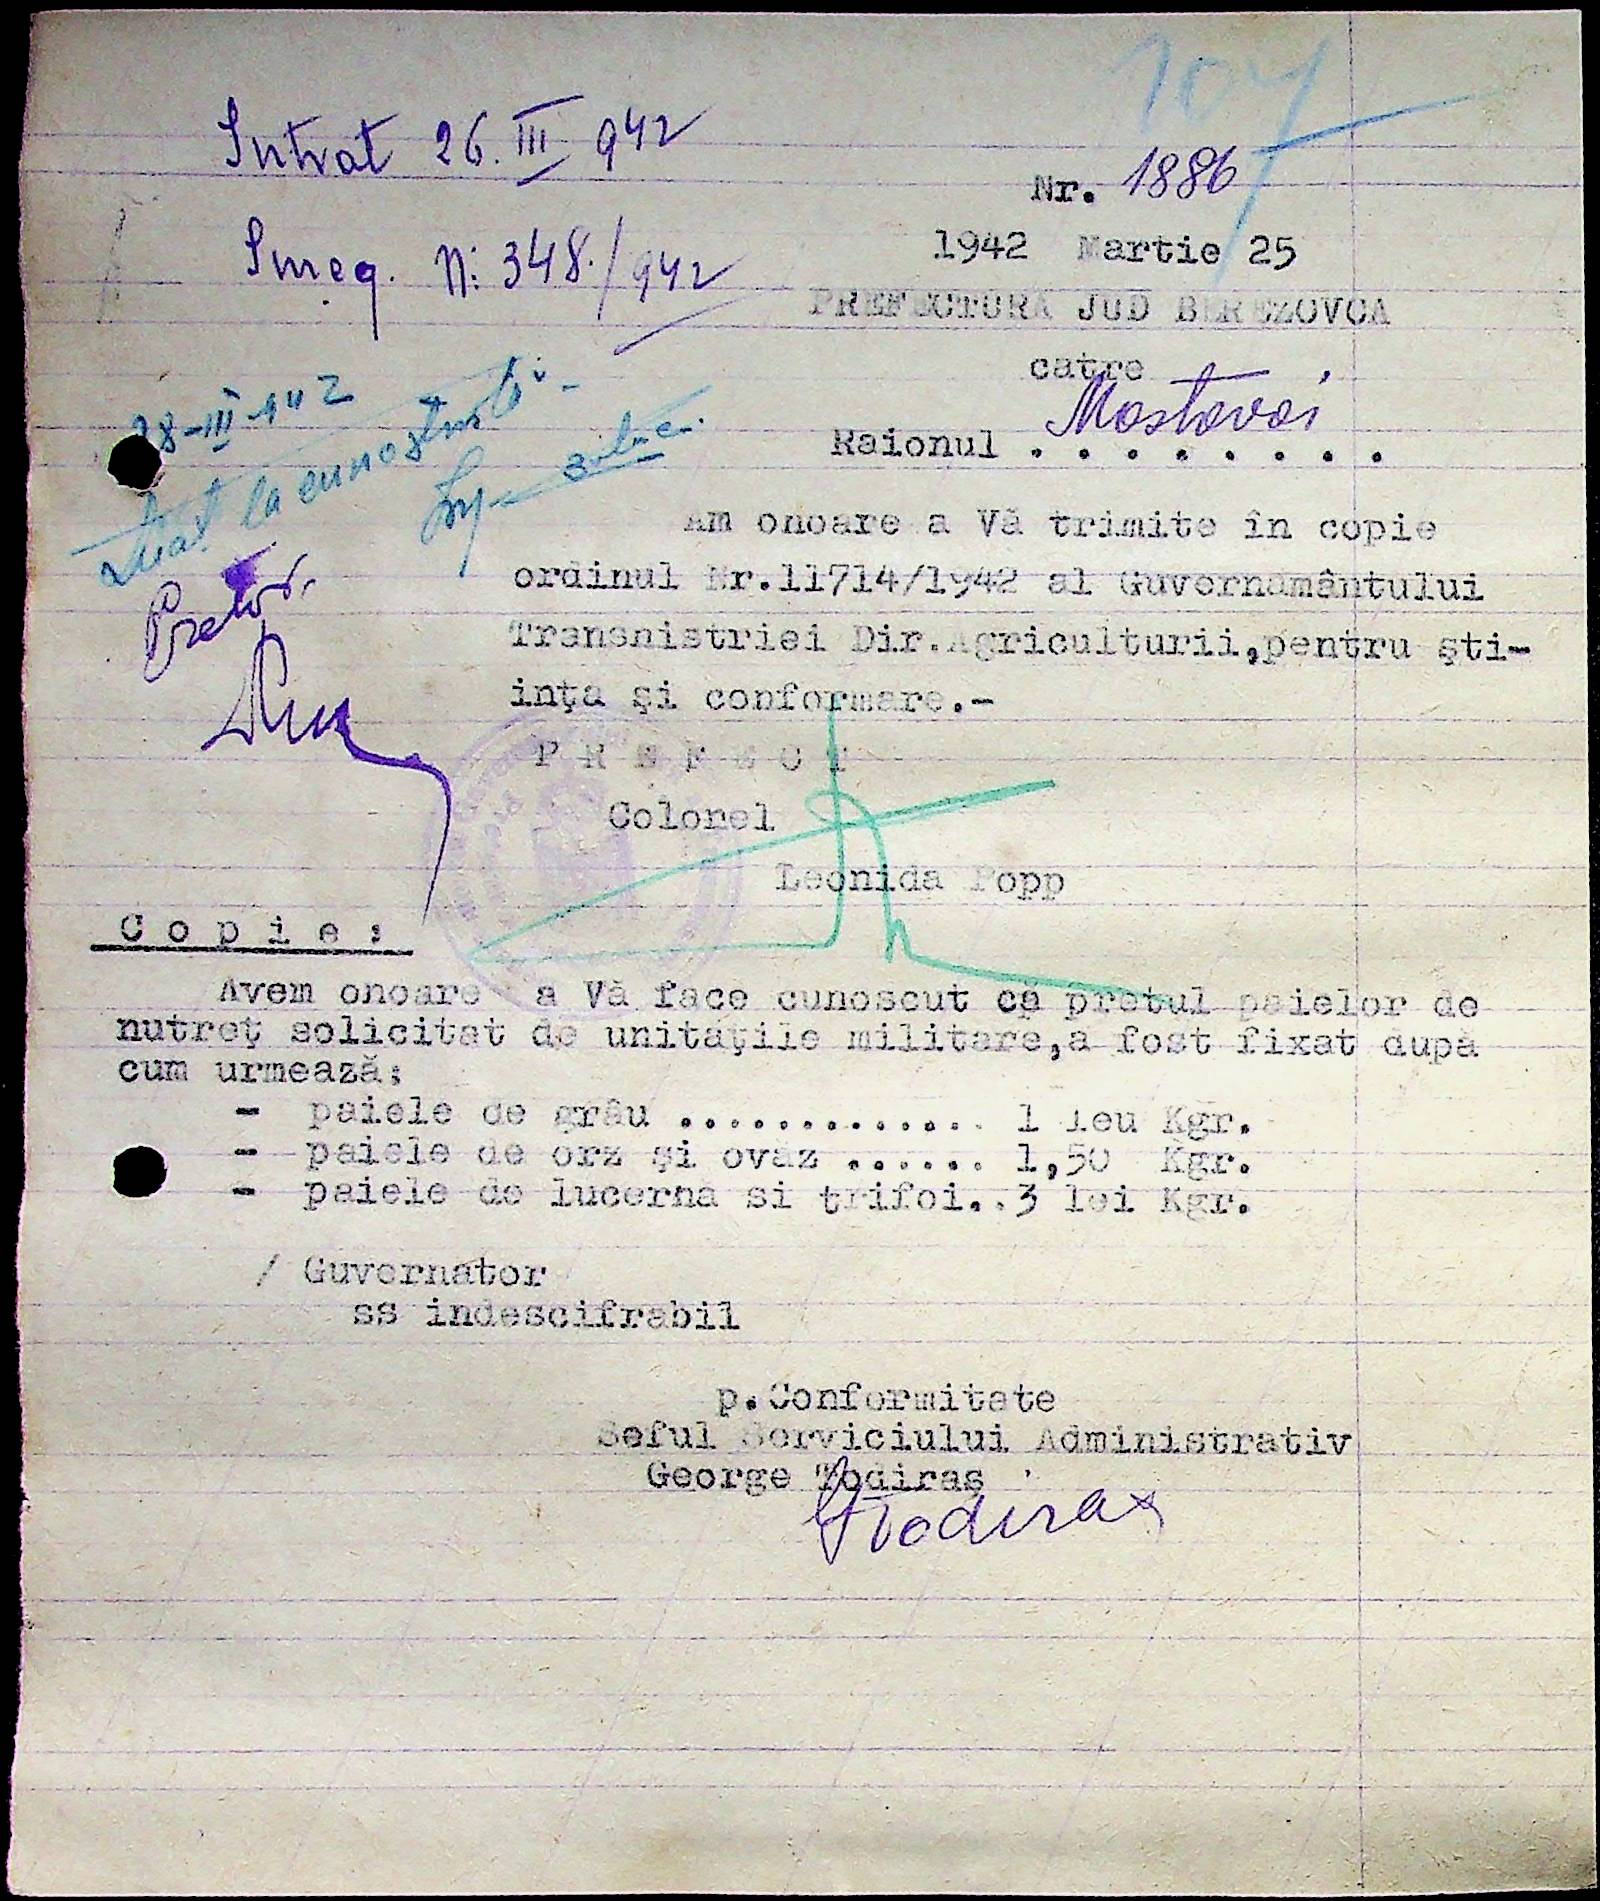 104
Intrat 26.III 942
Nr. 1886
1942 Martie 25
Inreg. N: 348./942
PREFECTURA JUD BEREZOVCA
catre
28-III-942
Luat la cunostinta
Raionul Mostovoi . . . . . . . .
Am onoare a Vă trimite în copie
ordinul Nr.11714/1942 al Guvernământului
Transnistriei Dir.Agriculturii,pentru ști-
ința și conformare.-
Pretor.
P R E F E C T
Colonel
Leonida Popp
C o p i e :
Avem onoare a Vă face cunoscut că prețul paielor de
nutreț solicitat de unitățile militare,a fost fixat după
cum urmează:
- paiele de grâu .............. 1 leu Kgr.
- paiele de orz și ovăz ...... 1,50 Kgr.
- paiele de lucerna si trifoi.. 3 lei Kgr.
/ Guvernator
ss indescifrabil
p.Conformitate
Seful Serviciului Administrativ
George Todiraș
GTodiraș